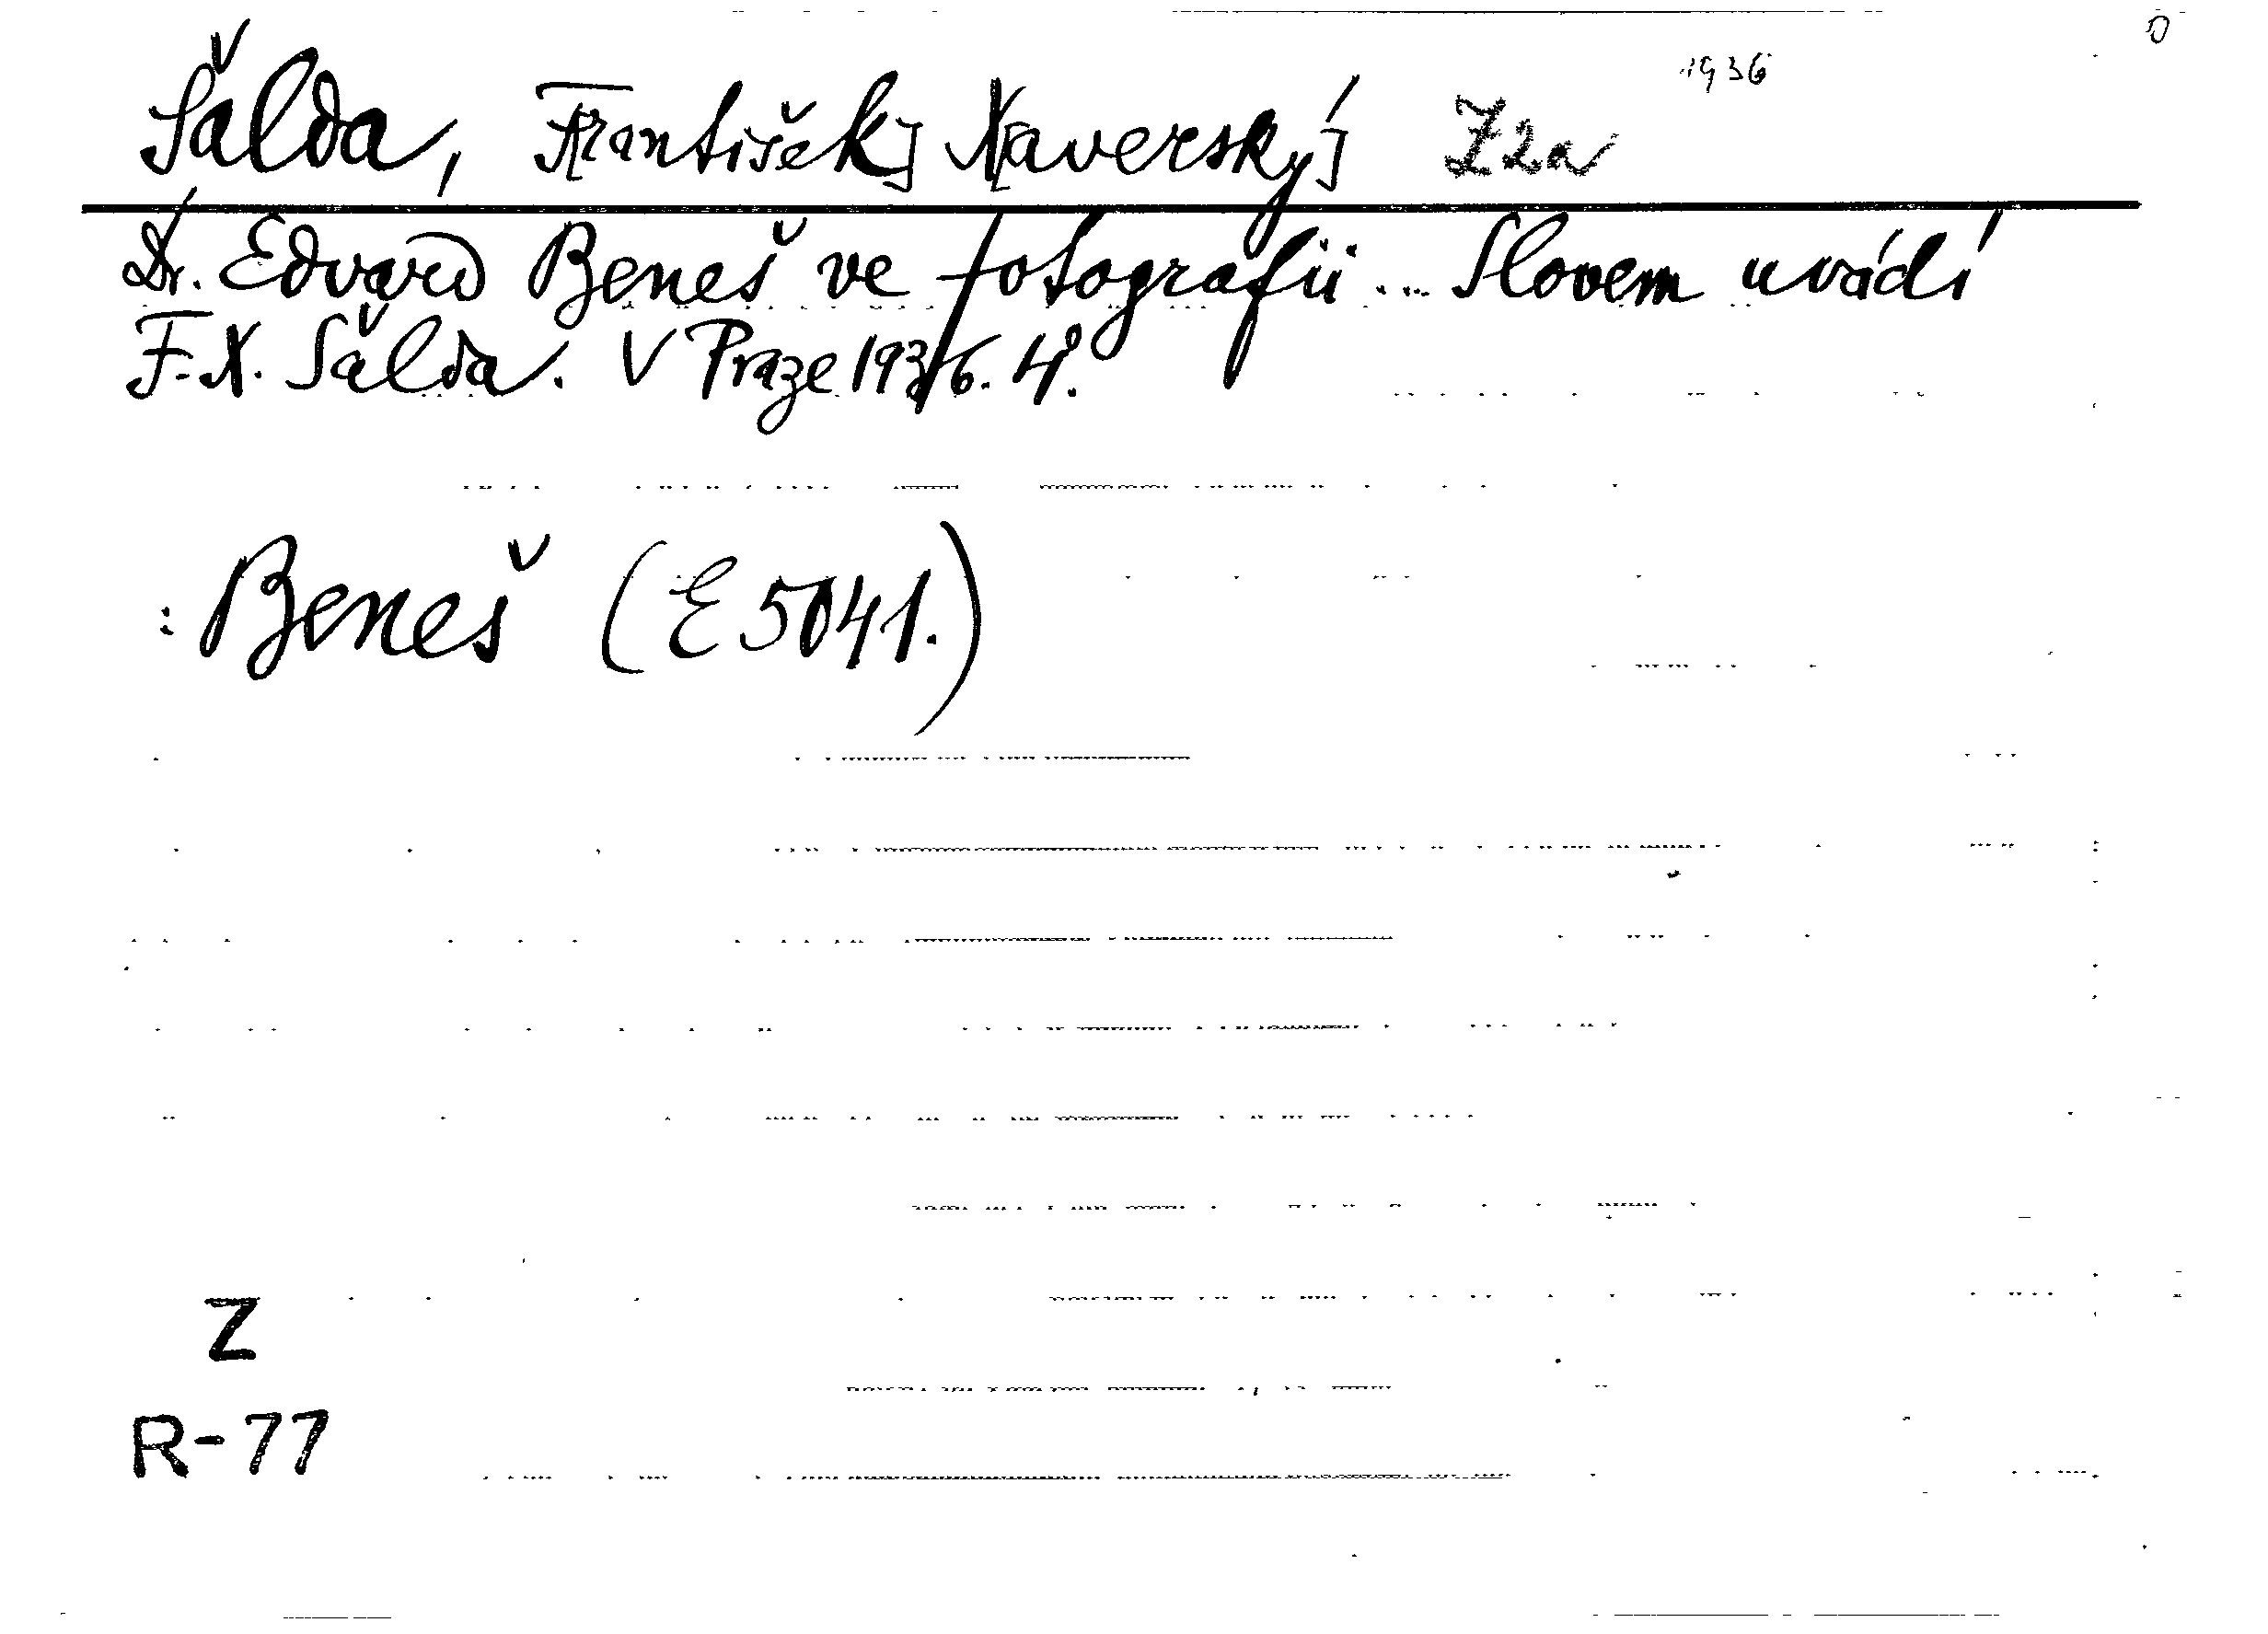 1936
Šalda, F[rantišek] X[averský] Z2a
Dr. Edvard Beneš ve fotografii ... Slovem uvádí
F. X. Šalda. V Praze 1936. 4°.
: Beneš (E 5041.)
Z
R-77